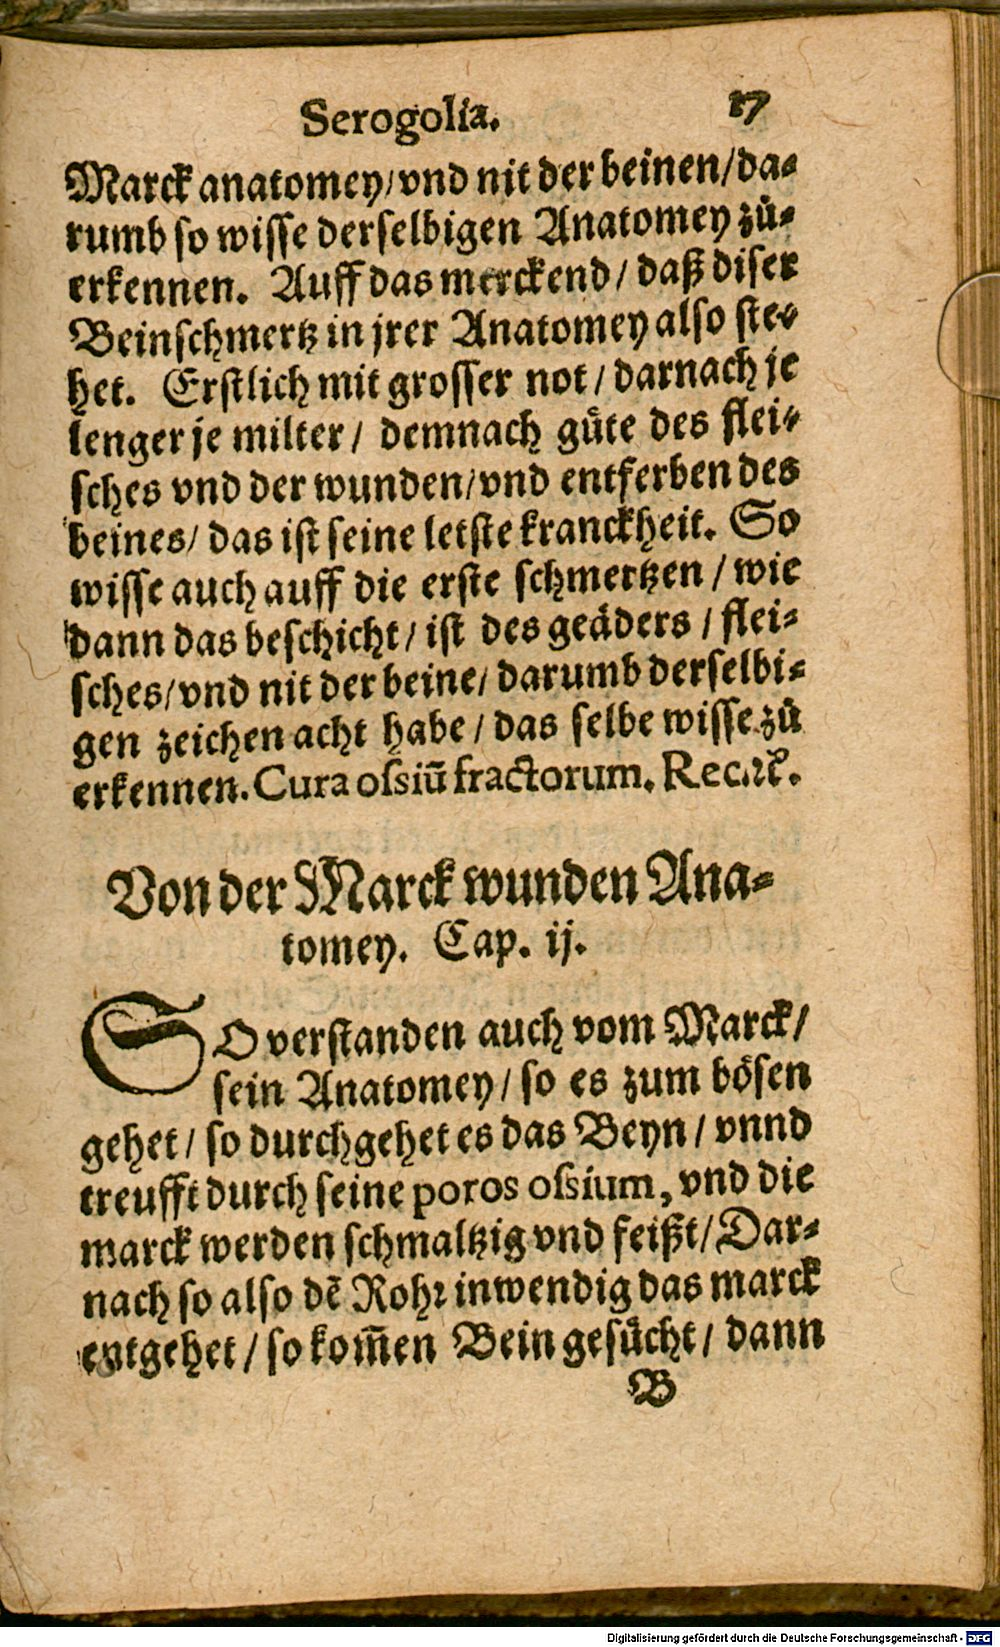 Serogolia. 17
Marck anatomey/ vnd nit der beinen/ da⸗
rumb so wisse derselbigen Anatomey zů⸗
erkennen. Auff das merckend/ daß diser
Beinschmertz in jrer Anatomey also ste⸗
het. Erstlich mit grosser not/ darnach je
lenger je milter/ demnach gůte des flei⸗
sches vnd der wunden/ vnd entferben des
beines/ das ist seine letste kranckheit. So
wisse auch auff die erste schmertzen/ wie
dann das beschicht/ ist des geäders/ flei⸗
sches/ vnd nit der beine/ darumb derselbi⸗
gen zeichen acht habe/ das selbe wisse zů
erkennen. Cura ossiū fractorum. Rec. ꝛc.
Von der Marck wunden Ana⸗
tomey. Cap. ij.
SO verstanden auch vom Marck/
sein Anatomey/ so es zum bösen
gehet/ so durchgehet es das Beyn/ vnnd
treufft durch seine poros ossium, vnd die
marck werden schmaltzig vnd feißt/ Dar⸗
nach so also dē Rohr inwendig das marck
entgehet/ so kom̄en Bein gesücht/ dann
B
Digitalisierung gefördert durch die Deutsche Forschungsgemeinschaft - DFG